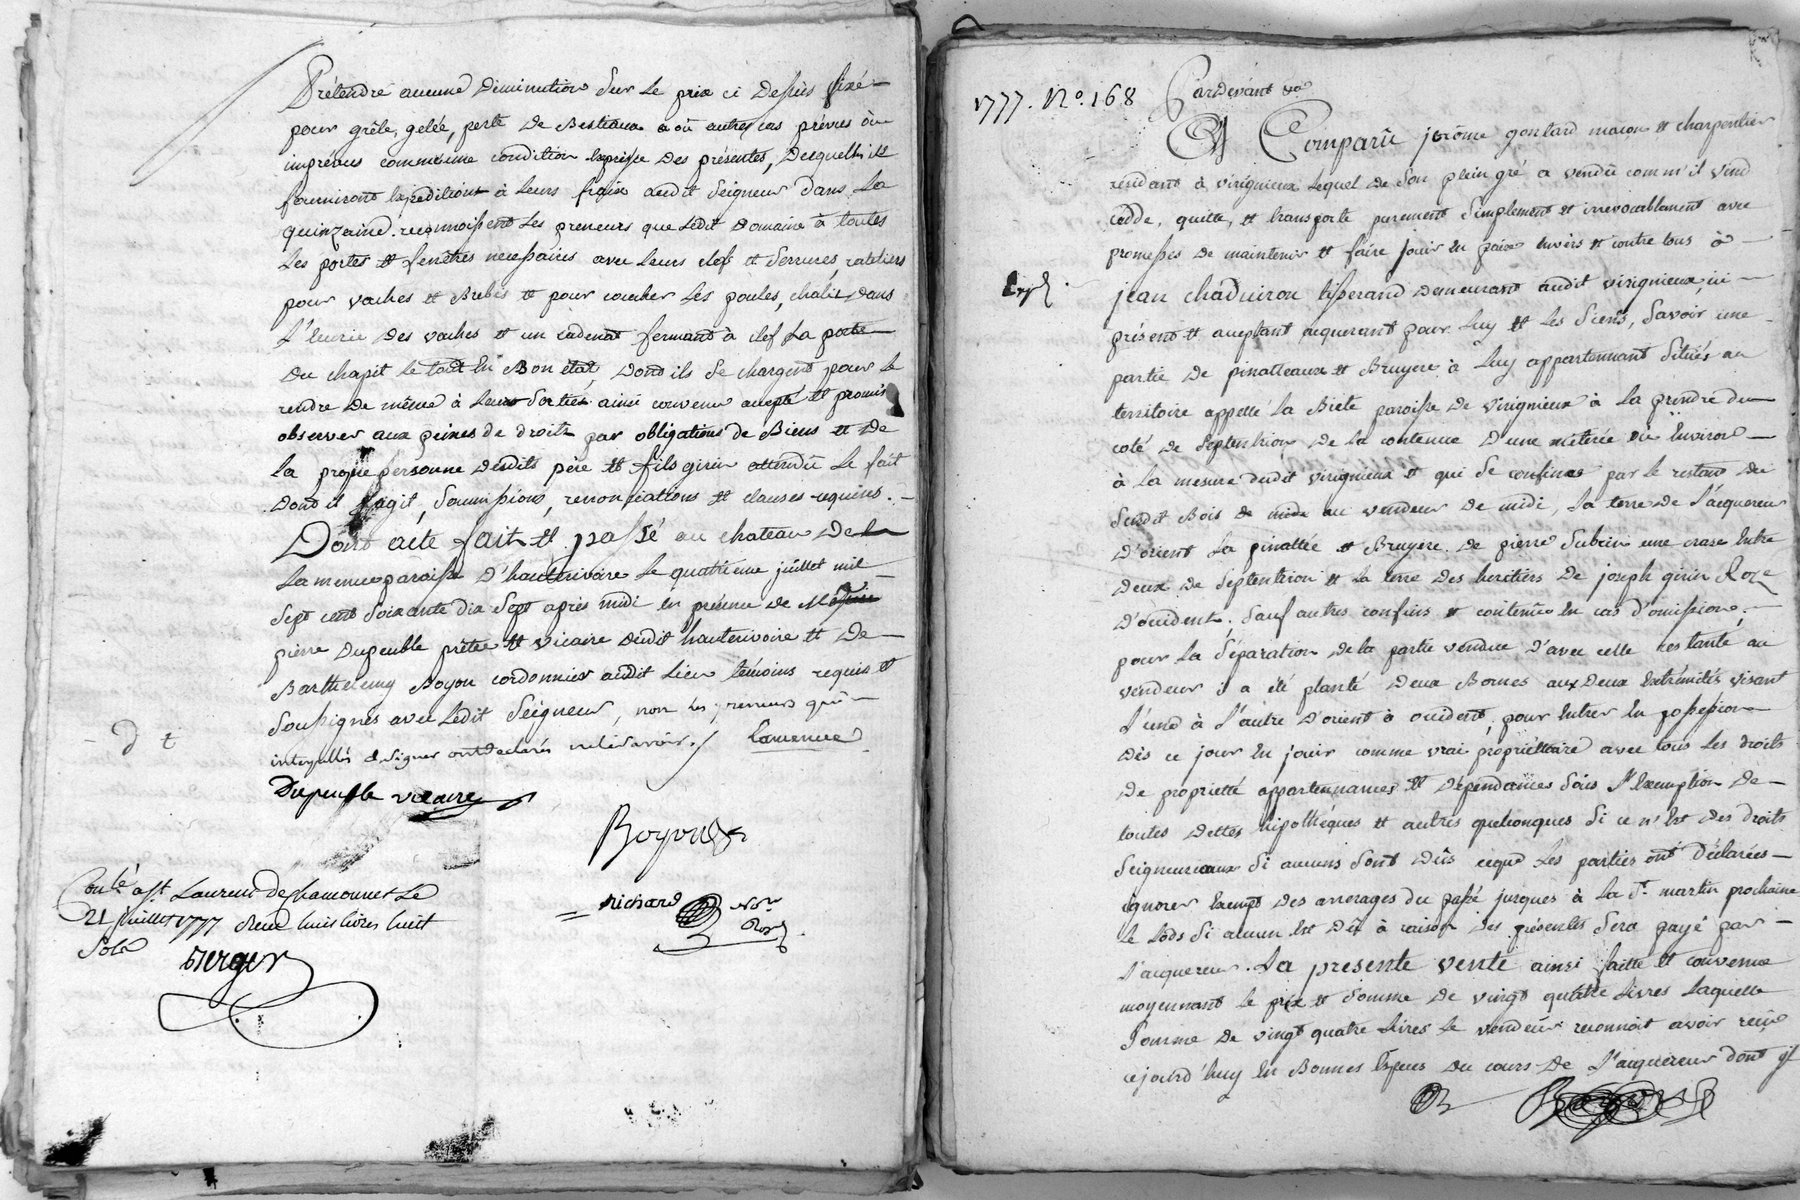 Prétendre aucune Diminution Sur Le prix ci Dessus fixé
pour grêle, gelée, perte De Bestiaux ou autres cas prévus ou
imprévus comme une condition Expresse Des présentes, Desquelles ils
fourniront Expedition à Leurs fraix audit Seigneur Dans La
quinzaine. reconnoissent Les preneurs que Ledit Domaine à toutes
Les portes et fenêtres necessaires avec Leurs clefs et Serrures, rateliers
pour vaches et Brebis et pour coucher Les poules, chalit, Dans
L'Ecurie Des vaches et un cadenat fermant à clef La porte
Du chapit Le tout En Bon état, Dont ils Se chargent pour Le
rendre De même à Leur Sortie, ainsi convenu accepté et promis
observer aux peines de droits par obligations de Biens et De
la propre personne Desdits père et fils girin attendû Le fait
Dont il S'agit, Soumissions, renonciations et clauses requises.
Dont acte fait et passé au chateau De
La menue paroisse D'hauterivoire Le quatrième juillet mil
Sept cent Soixante dix Sept après midi En présence de Messire
pierre Dupeuble prêtre et vicaire Dudit hauterivoire et De
Barthelemy Boyon cordonnier audit Lieu témoins requis et
Soussignés avec Ledit Seigneur, non Les preneurs qui
interpellés de Signer ont Declarés ne le Savoir. Lamenue
Dupeuble vicaire
Boyon
richard Nore
Roy
Conlé a St Laurent De chamousset Le
21 juillet 1777 Reçu huit livres huit
Sols
Berger
d t
1777. No. 168 Pardevant
A Comparû jerôme gontard maçon et charpentier
residant à virignieux Lequel De Son plein gré a vendu comm'il vend
cedde, quitte, et transporte purement Simplement et irrevocablement avec
promesses De maintenir et faire jouir En paix Envers et contre tous à
jean chadviron tisserand Demeurant audit virignieux, ici
présent et acceptant acquerant pour Luy et Les Siens, Savoir une
partie De pinatteaux et Bruyere à Luy appartennant Situés au
territoire appellé La Biete paroisse De virignieux à La prendre du
coté De Septentrion De la contenue D'une méterée ou Environ
à La mesure dudit virignieux et qui Se confines par le restant Du
Susdit Bois de midi au vendeur De midi, La terre De L'acquereur
D'orient La pinattée et Bruyere De pierre Subrin une crase Entre
Deux De Septentrion et La terre Des heritiers De joseph girin Roze
D'occident, Sauf autres confins et contenue En cas D'omission,
pour La Séparation De la partie vendue D'avec celle restante au
vendeur il a été planté Deux Bornes aux Deux Extrémités visant
L'une à L'autre D'orient à occident, pour Entrer En possession
Dès ce jour En jouir comme vrai propriéttaire avec tous Les Droits
De propriété appartennances et Dépendances Sous L'Exemption De
toutes Dettes hipothéques et autres quelconques Si ce n'Est Des Droits
Seigneuriaux Si aucuns Sont Dûs ceque Les parties ont Déclarées
ignorer Exempt Des arrerages du passé jusques à La St. martin prochaine
Le Lods Si aucun Est Dû à raison Des présentes Sera payé par
L'acquereur. La présente vente ainsi faitte et convenue
moyennant Le prix et Somme De vingt quatre Livres Laquelle
Somme De vingt quatre Livres Le vendeur reconnoit avoir reçû
cejourd'huy En Bonnes Espèces Du cours De L'acquereur Dont il